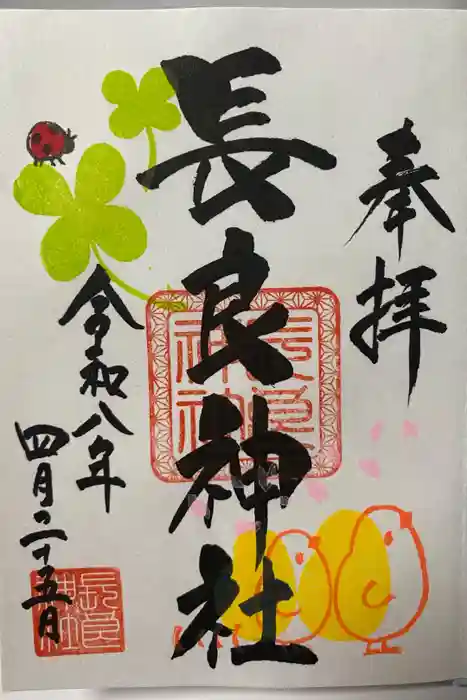 奉拝
長良神社
長良神社
令和八年
四月二十五日
長良神社